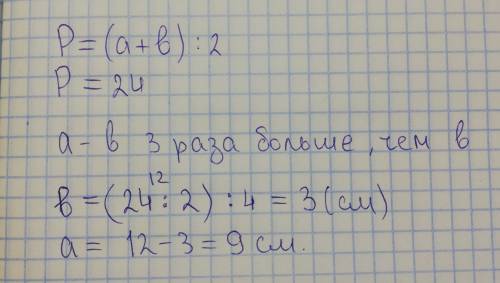 P = (a + в) : 2
P = 24
а - в 3 раза больше, чем в
12
в = (24 : 2) : 4 = 3 (см)
а = 12 - 3 = 9 см.